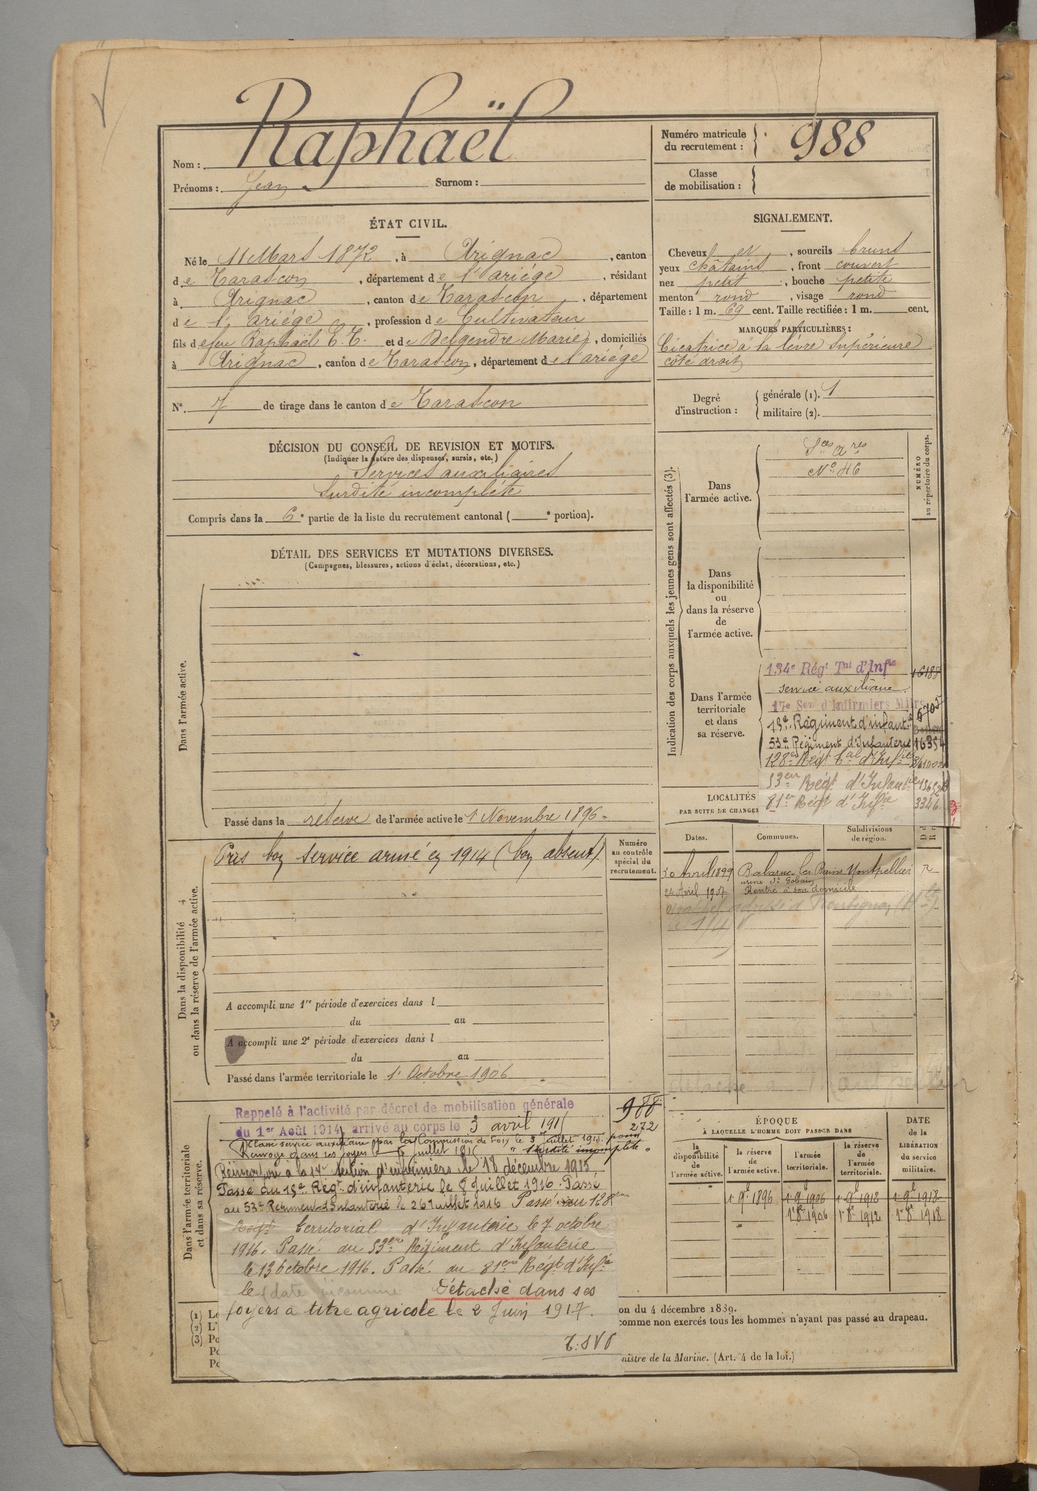 Nom : Raphaël
Prénoms : Jean Surnom :
Numéro matricule du recrutement : 988
Classe de mobilisation :
ÉTAT CIVIL.
Né le 11 Mars 1872, à Arignac, canton
de Tarascon, département de l'ariége, résidant
à Arignac, canton de Tarascon, département
de l'ariége, profession de Cultivateur
fils de feu Raphaël E. E. et de Delgendre Marie, domiciliés
à Arignac, canton de Tarascon, département de l'ariége
N° 7 de tirage dans le canton de Tarascon
SIGNALEMENT.
Cheveux et, sourcils bruns
yeux châtains, front couvert
nez petit, bouche petite
menton rond, visage rond
Taille : 1 m. 69 cent. Taille rectifiée : 1 m. cent.
MARQUES PARTICULIÈRES :
Cicatrice à la lèvre supérieure
côté droit
Degré d'instruction : générale (1). 1
militaire (2).
DÉCISION DU CONSEIL DE REVISION ET MOTIFS.
(Indiquer la nature des dispenses, sursis, etc.)
Services auxiliaires
Surdité incomplète
Compris dans la 6e partie de la liste du recrutement cantonal ( e portion).
DÉTAIL DES SERVICES ET MUTATIONS DIVERSES.
(Campagnes, blessures, actions d'éclat, décorations, etc.)
Dans l'armée active.
Passé dans la réserve de l'armée active le 1 Novembre 1896.
Indication des corps auxquels les jeunes gens sont affectés (3).
NUMÉRO au répertoire du corps.
Dans l'armée active.
Sces ares
N° 46
Dans la disponibilité ou dans la réserve de l'armée active.
Dans l'armée territoriale et dans sa réserve.
134e Régt Tal d'Infie
service auxiliaire
17e Son d'Infirmiers Mres
15e Régiment d'infant.
53e Régiment d'Infanterie 16354
128e Régt Tal d'Infie
53eme Régt d'Infantie
81er Régt d'Infie 3346
LOCALITÉS
PAR SUITE DE CHANGE
Dates. Communes. Subdivisions de région.
20 Avril 1899 Balaruc les Bains Montpellier R
usine St Gobain
Avril 1907 Rentré à son domicile
Dans la disponibilité ou dans la réserve de l'armée active.
Numéro au contrôle spécial du recrutement.
Pris bon service armé en 1914 (bon absent)
A accompli une 1re période d'exercices dans l
du au
A accompli une 2e période d'exercices dans l
du au
Passé dans l'armée territoriale le 1 Octobre 1906
Dans l'armée territoriale et dans sa réserve.
988
272
Rappelé à l'activité par décret de mobilisation générale
du 1er Août 1914, arrivé au corps le 3 avril 1915
Classé service auxiliaire par la Commission de Foix le 3 juillet 1915 pour
Renvoyé dans ses foyers le 6 juillet 1915 "surdité incomplète"
Réincorporé à la 17e Section d'infirmiers le 18 décembre 1915.
Passé au 15e Régt d'infanterie le 8 Juillet 1916. Passé
au 53e Régiment d'Infanterie le 26 Juillet 1916 Passé au 128eme
Regt territorial d'Infanterie le 7 octobre
1916. Passé au 53eme Régiment d'Infanterie
le 13 Octobre 1916. Passé au 81eme Régt d'Infie
le (date inconnue Détaché dans ses
foyers à titre agricole le 2 Juin 1917.
T.SVP
ÉPOQUE
À LAQUELLE L'HOMME DOIT PASSER DANS
DATE de la LIBÉRATION du service militaire.
la disponibilité de l'armée active. la réserve de l'armée active. l'armée territoriale. la réserve de l'armée territoriale.
1 9e 1896 1 9e 1906 1 9e 1912 1 9e 1918
1 8e 1906 1 8e 1912 1 8e 1918
(1)
(2)
(3)
on du 4 décembre 1889.
comme non exercés tous les hommes n'ayant pas passé au drapeau.
nistre de la Marine. (Art. 4 de la loi.)